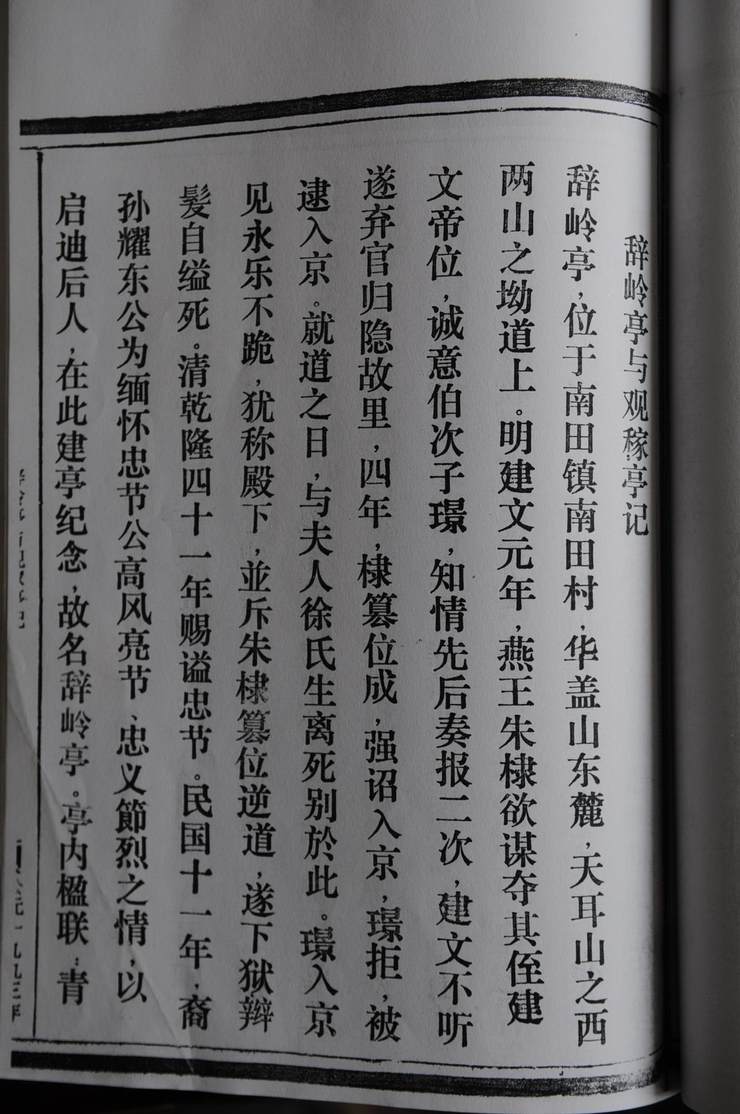 辞岭亭与观稼亭记
辞岭亭，位于南田镇南田村，华盖山东麓，天耳山之西
两山之坳道上。明建文元年，燕王朱棣欲谋夺其侄建
文帝位，诚意伯次子璟，知情先后奏报二次，建文不听
遂弃官归隐故里，四年，棣篡位成，强诏入京，璟拒，被
逮入京。就道之日，与夫人徐氏生离死别於此。璟入京
见永乐不跪，犹称殿下，並斥朱棣篡位逆道，遂下狱辫
髪自缢死。清乾隆四十一年赐谥忠节。民国十一年，裔
孙耀东公为缅怀忠节公高风亮节、忠义節烈之情，以
启迪后人，在此建亭纪念，故名辞岭亭。亭内楹联：青
一九九三年